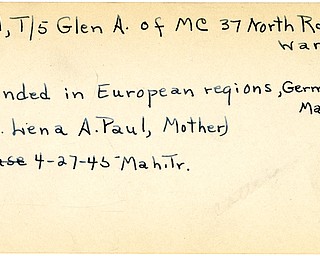 T/5 Glen A. of MC 37 North Ro
War
nded in European regions, Germ
Ma
. Liena A. Paul, Mother)
ase 4-27-45-Mah.Tr.